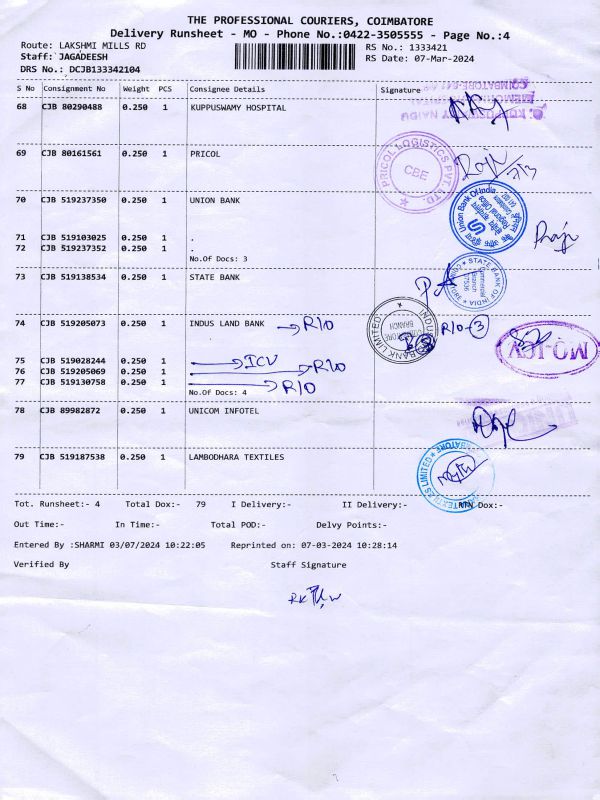 THE PROFESSIONAL COURIERS, COIMBATORE
Delivery Runsheet - MO - Phone No.:0422-3505555 - Page No.:4
Route: LAKSHMI MILLS RD RS No.: 1333421
Staff: JAGADEESH RS Date: 07-Mar-2024
DRS No.: DCJB133342104
S No Consignment No Weight PCS Consignee Details Signature
68 CJB 80290488 0.250 1 KUPPUSWAMY HOSPITAL
69 CJB 80161561 0.250 1 PRICOL
PRICOL LOGISTICS PVT. LTD.
CBE
Raji
70 CJB 519237350 0.250 1 UNION BANK
Union Bank Of India
Raji
71 CJB 519103025 0.250 1 .
72 CJB 519237352 0.250 1 .
No.Of Docs: 3
73 CJB 519138534 0.250 1 STATE BANK
STATE BANK OF INDIA
Commercial Branch
74 CJB 519205073 0.250 1 INDUS LAND BANK → R/O
INDUSIND BANK LIMITED
COIMBATORE BRANCH
R/O-3
MO-ICV
75 CJB 519028244 0.250 1 → ICV
76 CJB 519205069 0.250 1 → R/O
77 CJB 519130758 0.250 1 → R/O
No.Of Docs: 4
78 CJB 89982872 0.250 1 UNICOM INFOTEL
79 CJB 519187538 0.250 1 LAMBODHARA TEXTILES
TEXTILES LIMITED
Tot. Runsheet:- 4 Total Dox:- 79 I Delivery:- II Delivery:- RTN Dox:-
Out Time:- In Time:- Total POD:- Delvy Points:-
Entered By :SHARMI 03/07/2024 10:22:05 Reprinted on: 07-03-2024 10:28:14
Verified By Staff Signature